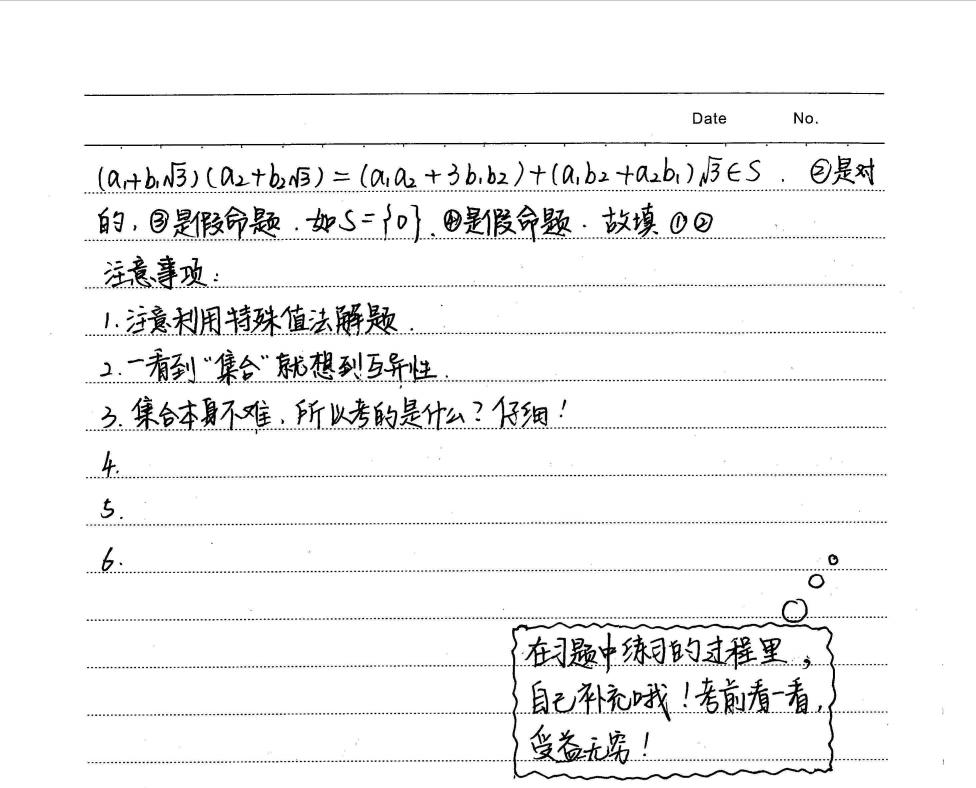 Date No.
(a₁+b₁√3)(a₂+b₂√3)=(a₁a₂+3b₁b₂)+(a₁b₂+a₂b₁)√3∈S. ②是对
的,③是假命题.如S={0}.④是假命题.故填①②
注意事项:
1.注意利用特殊值法解题.
2.一看到“集合”就想到互异性.
3.集合本身不难,所以考的是什么?仔细!
4.
5.
6.
在习题中练习的过程里,
自己补充哦!考前看一看,
受益无穷!